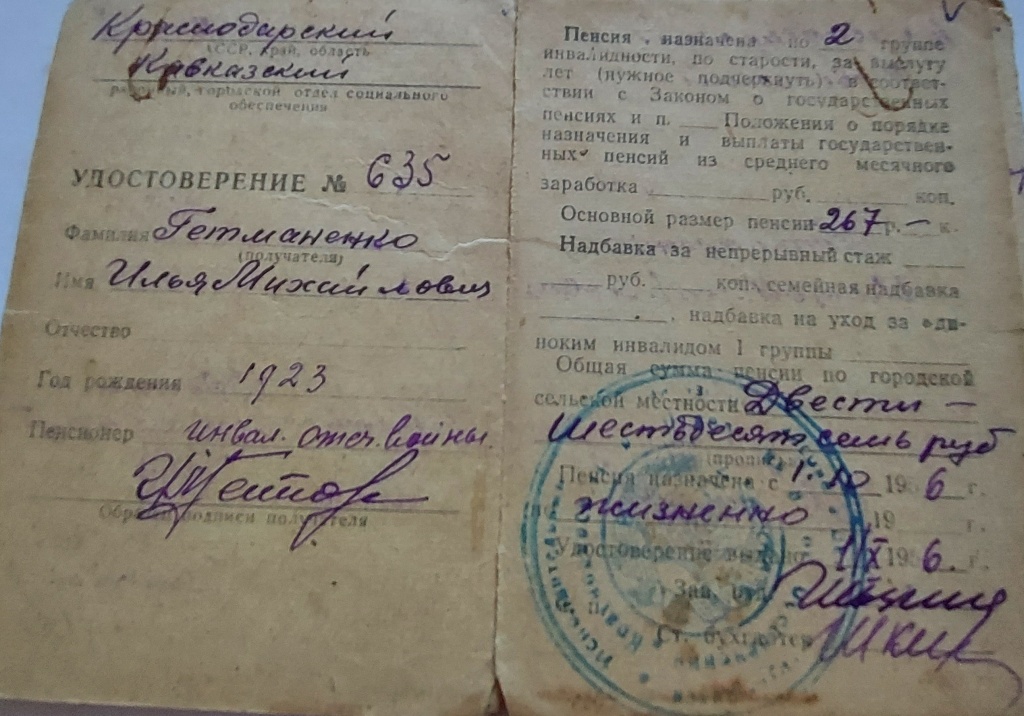 Краснодарский
АССР, край, область
Кавказский
районный, городской отдел социального
обеспечения
УДОСТОВЕРЕНИЕ № 635
Фамилия Гетманенко
(получателя)
Имя Илья Михайлович
Отчество
Год рождения 1923
Пенсионер инвал. отеч. войны.
Образец подписи получателя
Пенсия назначена по 2 группе
инвалидности, по старости, за выслугу
лет (нужное подчеркнуть) в соответ-
ствии с Законом о государственных
пенсиях и п. Положения о порядке
назначения и выплаты государствен-
ных пенсий из среднего месячного
заработка руб. коп.
Основной размер пенсии 267 р. – к.
Надбавка за непрерывный стаж
руб. коп. семейная надбавка
, надбавка на уход за оди-
ноким инвалидом I группы
Общая сумма пенсии по городской
сельской местности Двести –
шестьдесят семь руб
(прописью)
Пенсия назначена с 1. 10 1956 г.
по жизненно 19 г.
Удостоверение выдано 1/X 1956. г.
Зав.
Ст. бухгалтер